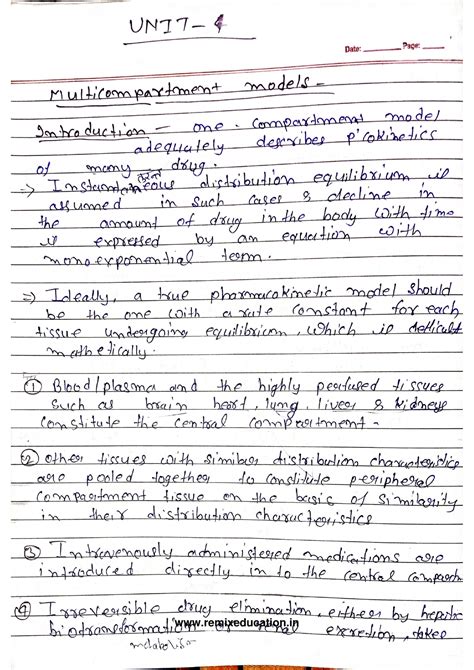 UNIT-4
Date: Page:
Multicompartment models -
Introduction - one-compartment model
adequately describes p'cokinetics
of many drug.
→ Instantaneous distribution equilibrium is
assumed in such cases & decline in
the amount of drug in the body with time
is expressed by an equation with
monoexponential term.
⇒ Ideally, a true pharmacokinetic model should
be the one with a rate constant for each
tissue undergoing equilibrium, which is
mathetically.
① Blood/plasma and the highly perfused tissues
such as brain heart, lung, liver & kidneys
constitute the central compartment -
② other tissues with similar distribution characteristics
are pooled together to constitute peripheral
compartment tissue on the basis of similarity
in their distribution characteristics
③ Intravenously administered medications are
introduced directly in to the central
④ Irreversible drug elimination, either by hepatic
biotransformation or renal excretion, takes
www.remixeducation.in